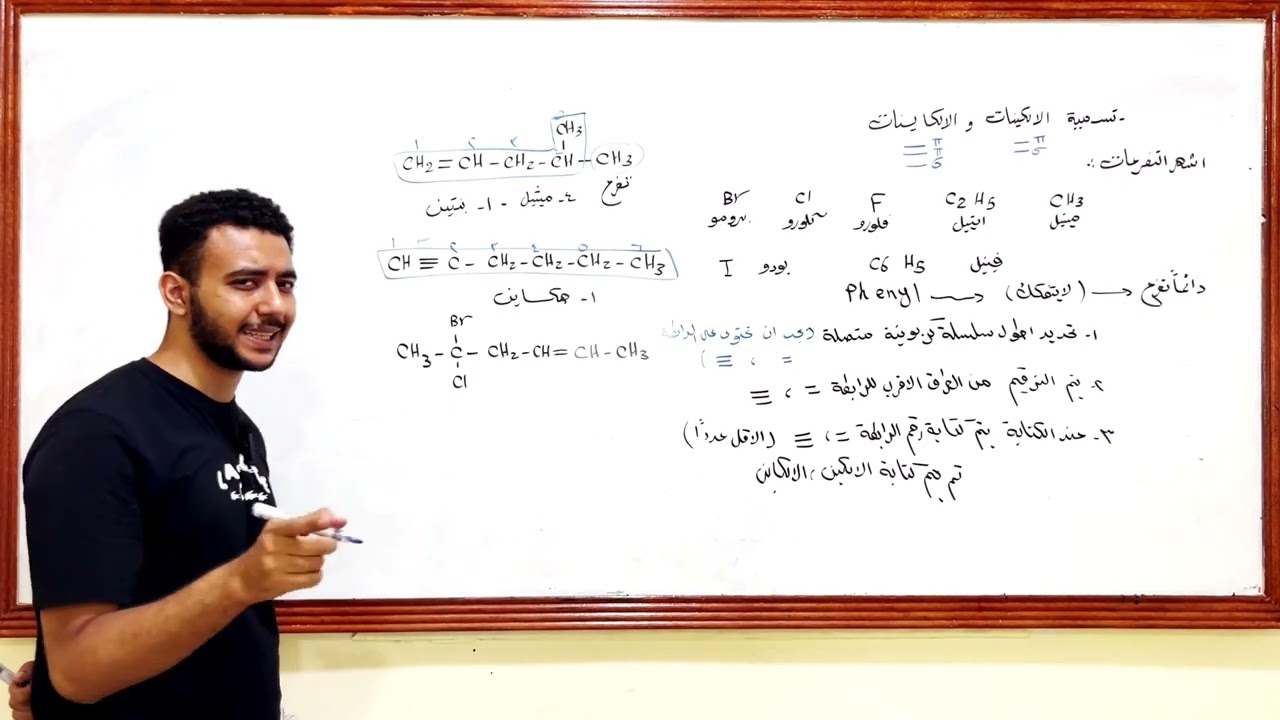 - تسمية الالكينات و الالكاينات
π π
π σ
σ
اشهر التفرعات :
CH3 C2H5 F Cl Br
ميثيل ايثيل فلورو كلورو برومو
فينيل C6H5 يودو I
دائماً تفرع → (لايتفكك) → Phenyl
١- تحديد اطول سلسلة كربونية متصلة (يجب ان تحتوى على الرابطة
= ، ≡ )
٢- يتم الترقيم من الطرف الاقرب للرابطة = ، ≡
٣- عند الكتابة يتم كتابة رقم الرابطة = ، ≡ (الاقل عدداً)
ثم يتم كتابة الالكين ، الالكاين
CH3
١ ٢ ٣
CH2 = CH - CH2 - CH - CH3
تفرع
٤- ميثيل - ١- بنتين
١ ٢ ٣ ٤ ٥ ٦
CH ≡ C - CH2 - CH2 - CH2 - CH3
١- هكساين
Br
CH3 - C - CH2 - CH = CH - CH3
Cl